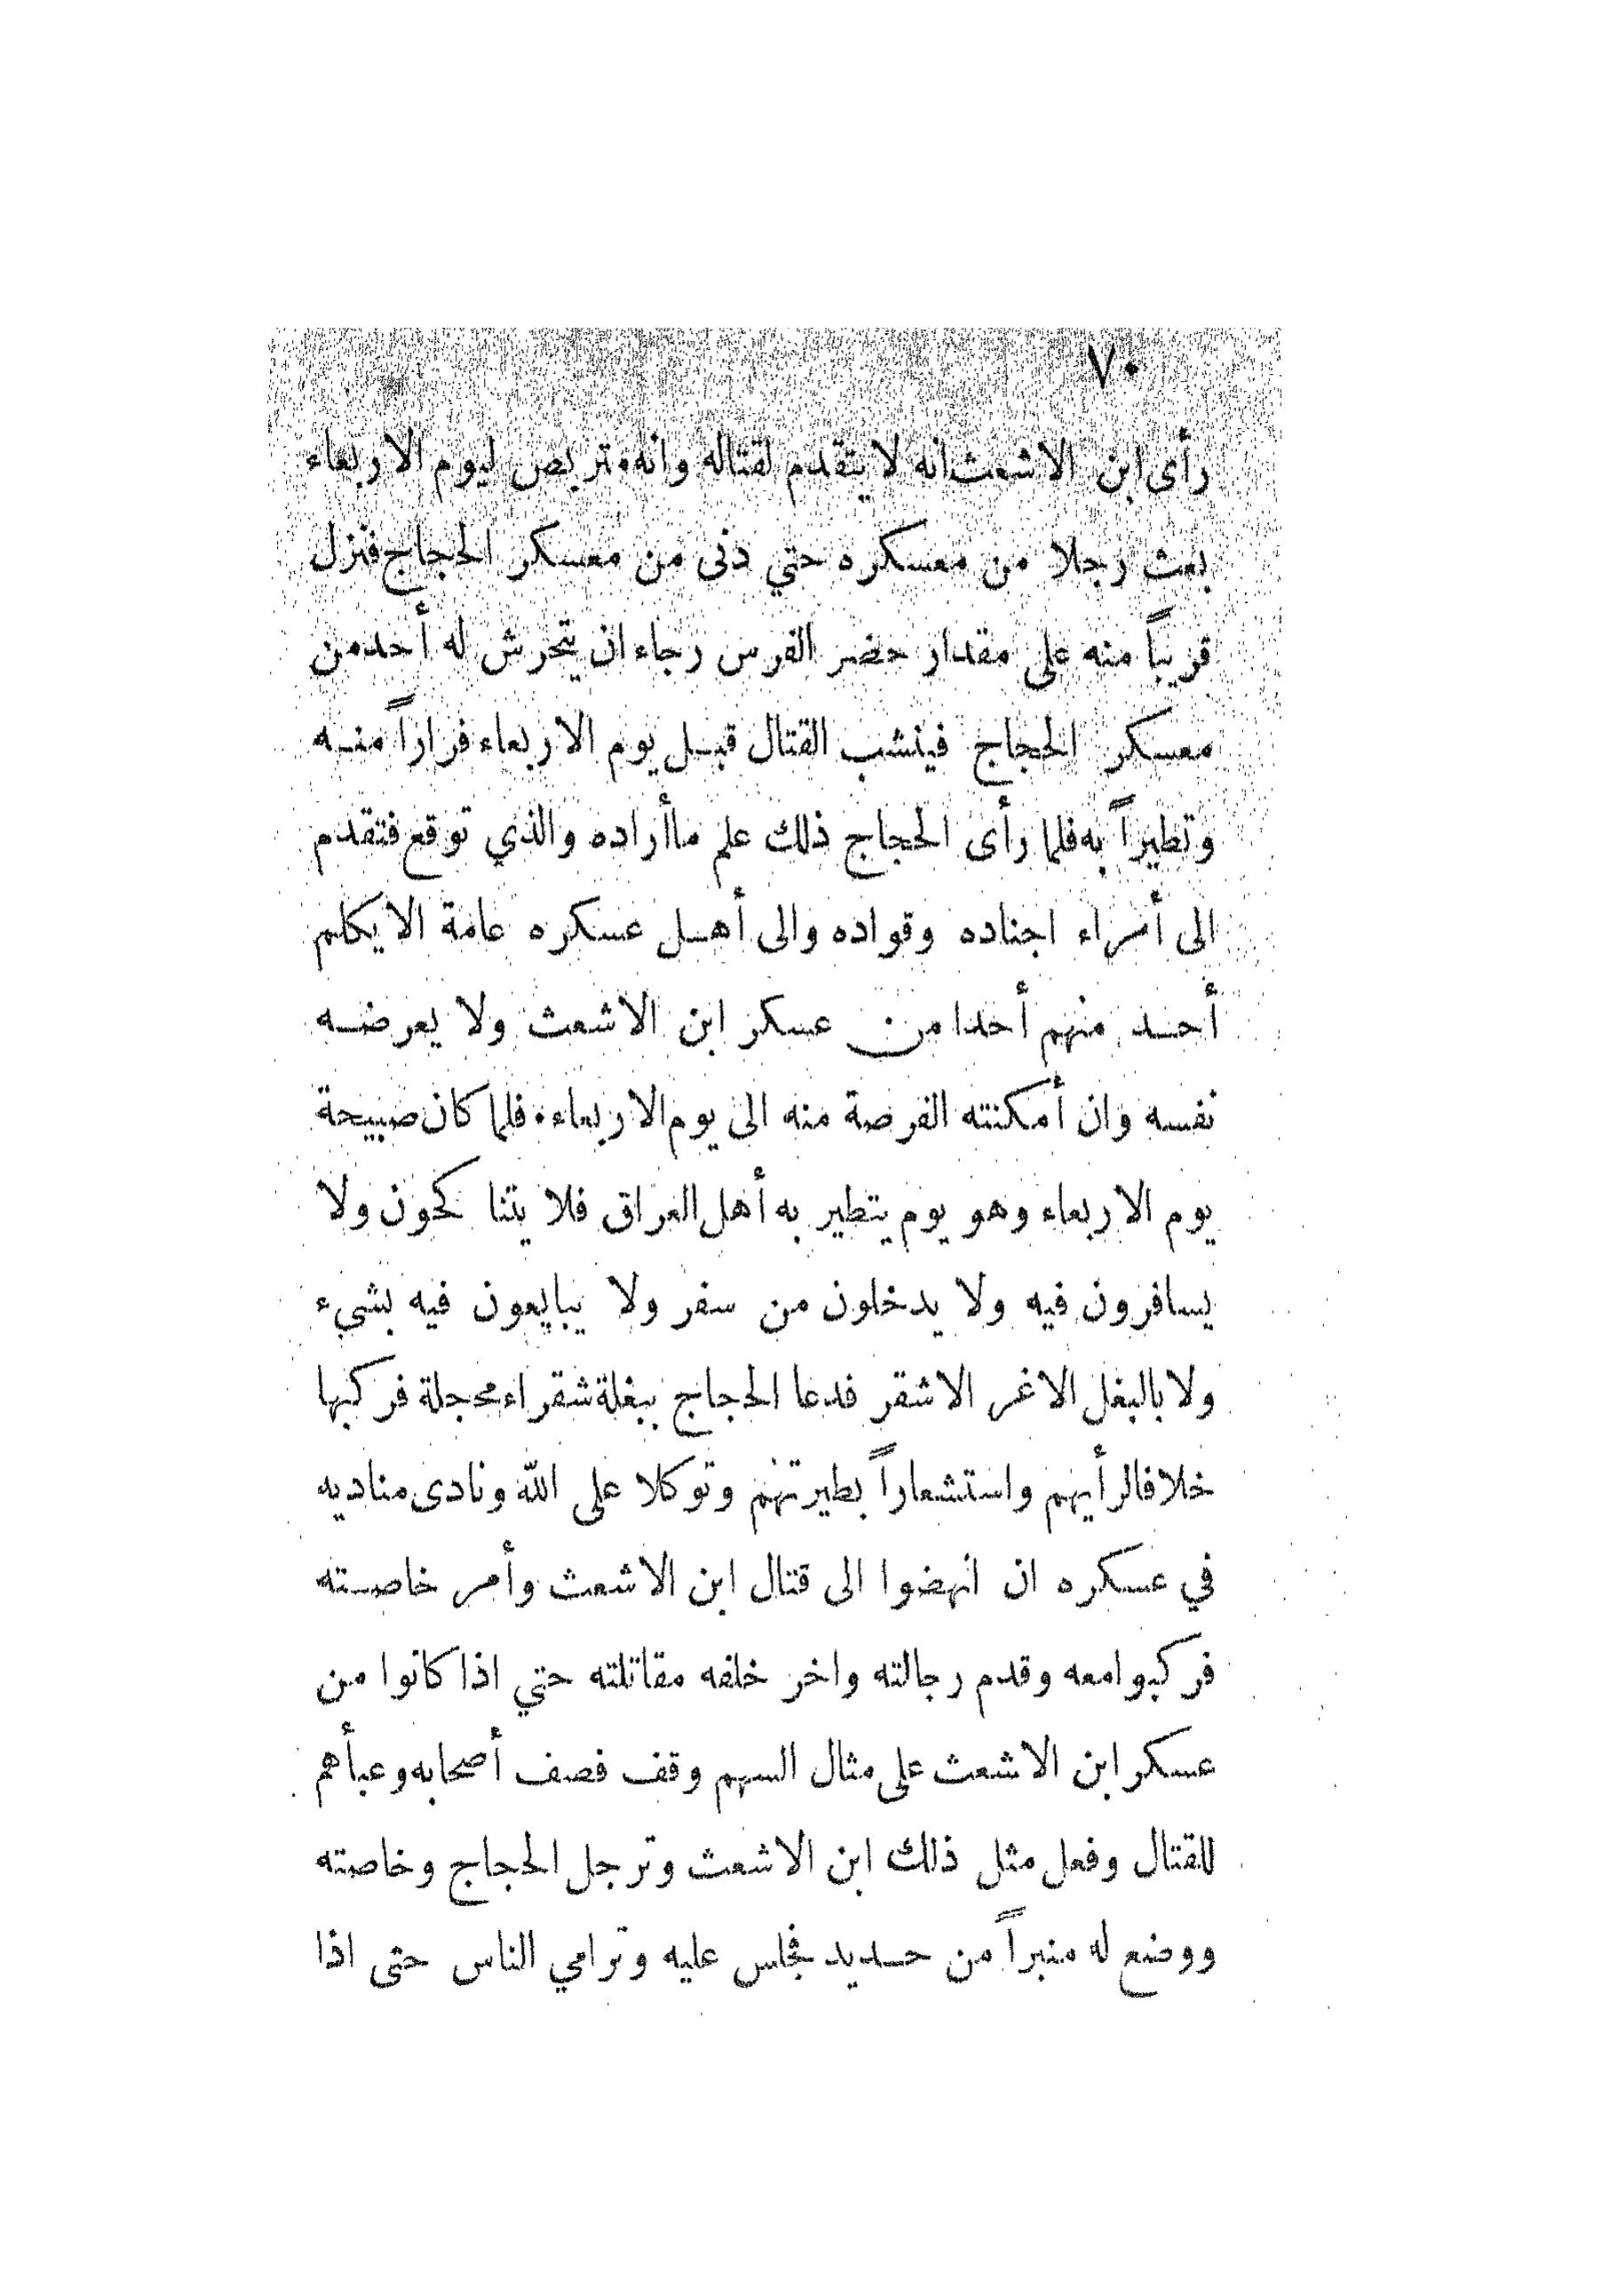 ٧٠
رأى ابن الاشعث انه لا يتقدم لقتاله وانه متربص ليوم الاربعاء
بعث رجلا من معسكره حتي دنى من معسكر الحجاج فنزل
قريباً منه على مقدار حضر الفرس رجاء ان يتحرش له أحد من
معسكر الحجاج فينشب القتال قبل يوم الاربعاء فراراً منه
وتطيراً به فلما رأى الحجاج ذلك علم ماأراده والذي توقع فتقدم
الى أمراء اجناده وقواده والى أهل عسكره عامة الا يكلم
أحد منهم أحدا من عسكر ابن الاشعث ولا يعرضه
نفسه وان أمكنته الفرصة منه الى يوم الاربعاء. فلما كان صبيحة
يوم الاربعاء وهو يوم يتطير به أهل العراق فلا يتنا كحون ولا
يسافرون فيه ولا يدخلون من سفر ولا يبايعون فيه بشيء
ولا بالبغل الاغر الاشقر فدعا الحجاج ببغلة شقراء محجلة فركبها
خلافا لرأيهم واستشعاراً بطيرتهم وتوكلا على الله ونادى مناديه
في عسكره ان انهضوا الى قتال ابن الاشعث وأمر خاصته
فركبوا معه وقدم رجالته واخر خلفه مقاتلته حتي اذا كانوا من
عسكر ابن الاشعث على مثال السهم وقف فصف أصحابه وعبأهم
للقتال وفعل مثل ذلك ابن الاشعث وترجل الحجاج وخاصته
ووضع له منبراً من حديد فجلس عليه وترامي الناس حتى اذا